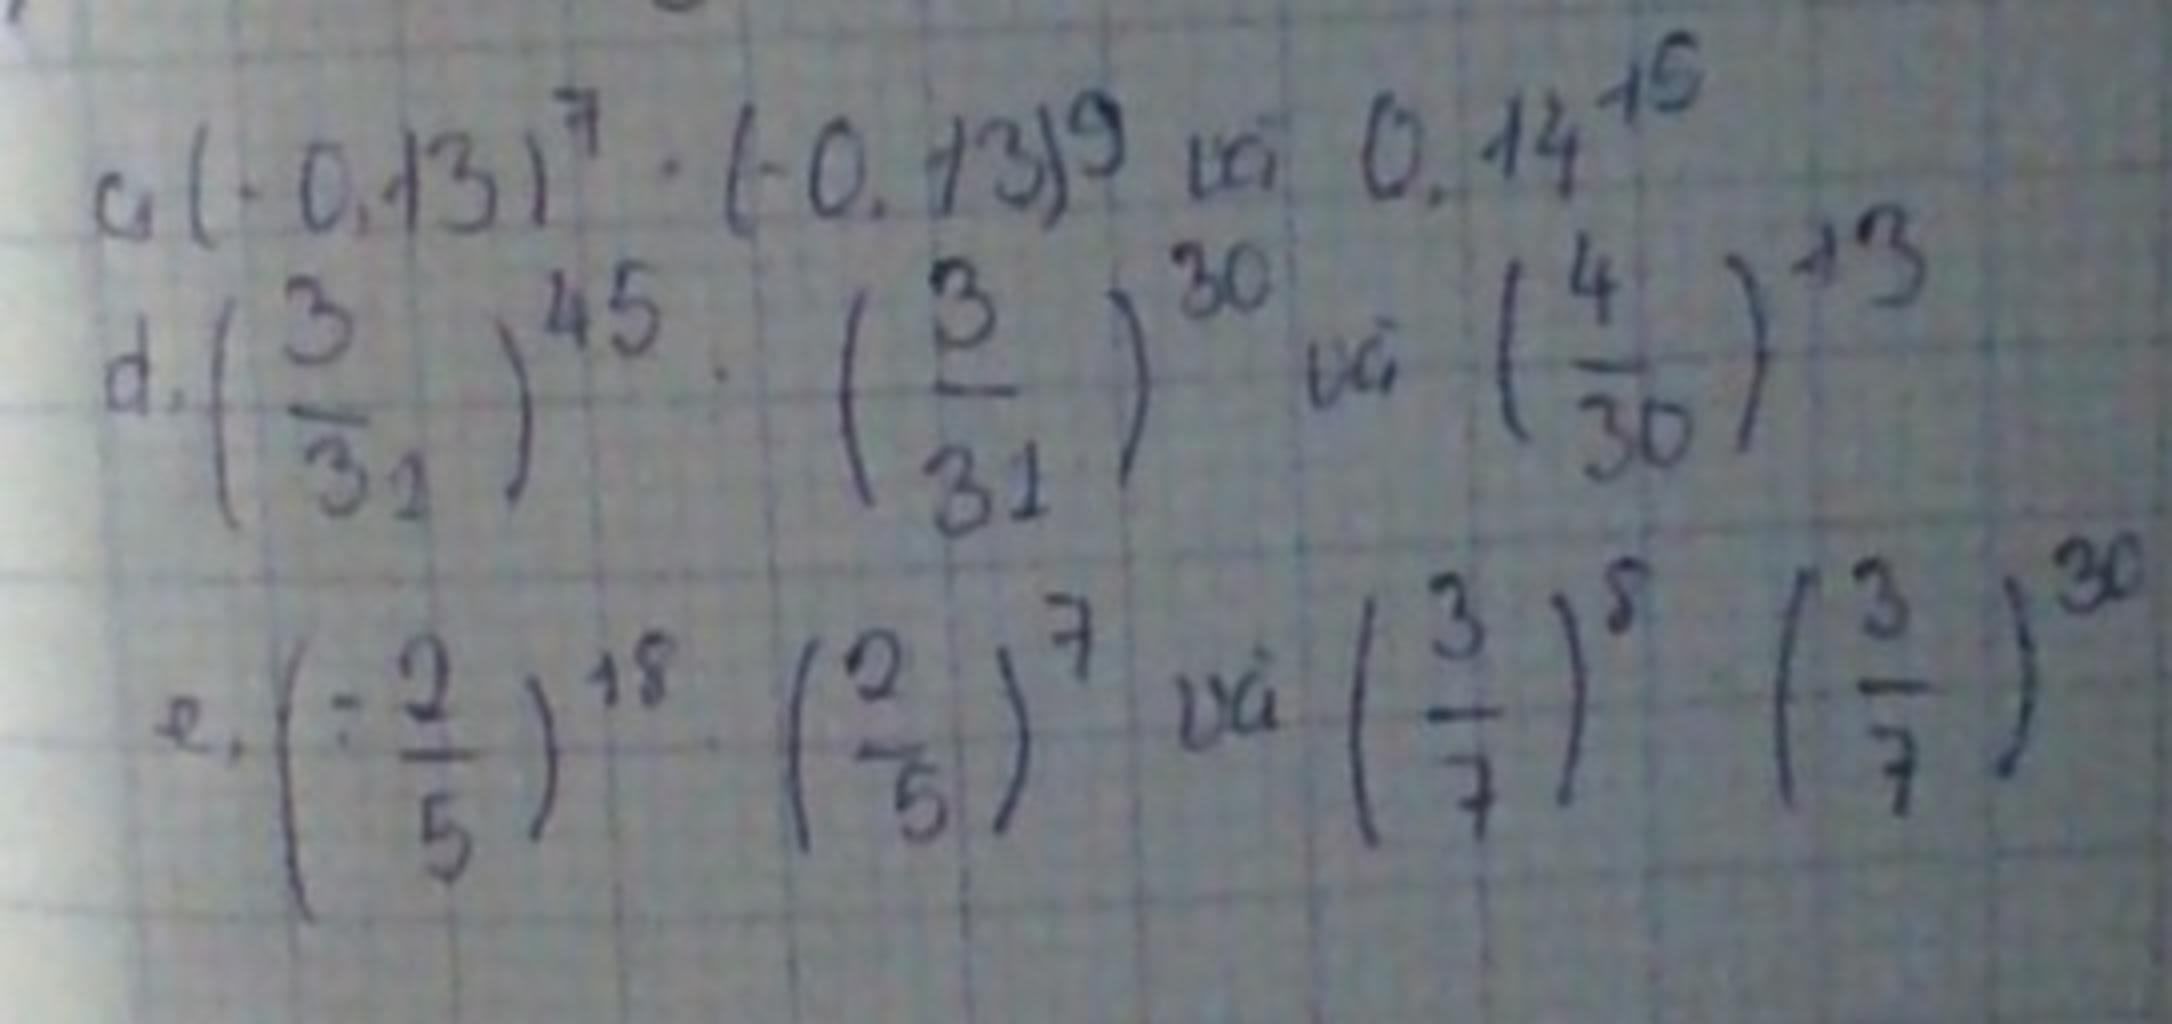 c, (-0,13)^7 . (-0.13)^9 và 0.14^15
d. (3/31)^45 . (3/31)^30 và (4/30)^13
e. (-2/5)^18 . (2/5)^7 và (3/7)^8 (3/7)^30